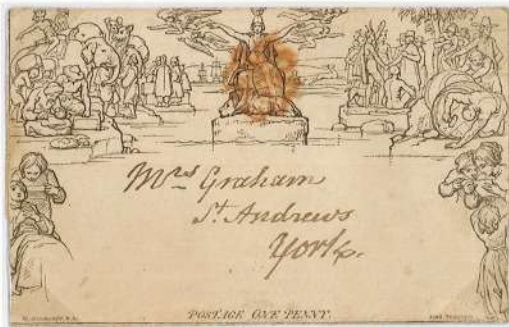 Mrs Graham
St. Andrews
York.
POSTAGE ONE PENNY.